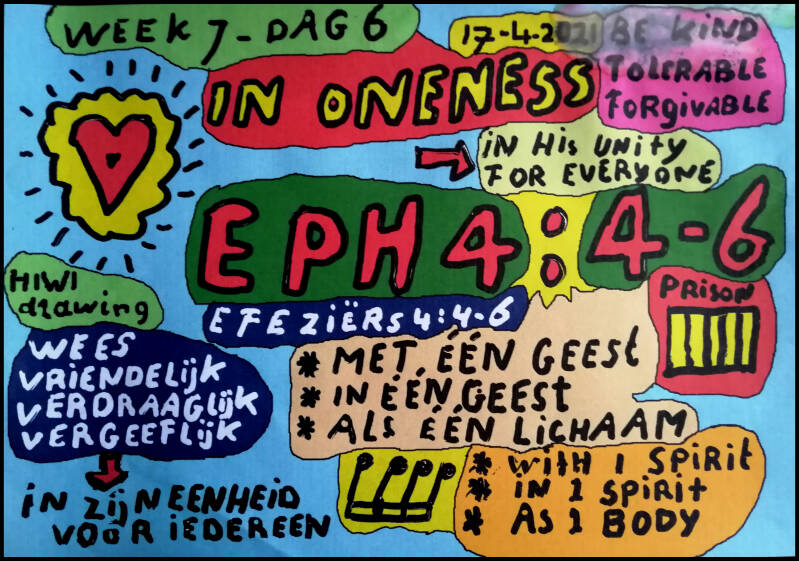 WEEK 7 - DAG 6
17-4-2021
BE KIND
TOLERABLE
FORGIVABLE
IN ONENESS
IN HIS UNITY
FOR EVERYONE
EPH 4:4-6
HIWI
drawing
EFEZIËRS 4:4-6
PRISON
WEES
VRIENDELIJK
VERDRAAGLIJK
VERGEEFLIJK
* MET ÉÉN GEEST
* IN ÉÉN GEEST
* ALS ÉÉN LICHAAM
IN ZIJN EENHEID
VOÓR IEDEREEN
* WITH 1 SPIRIT
* IN 1 SPIRIT
* AS 1 BODY